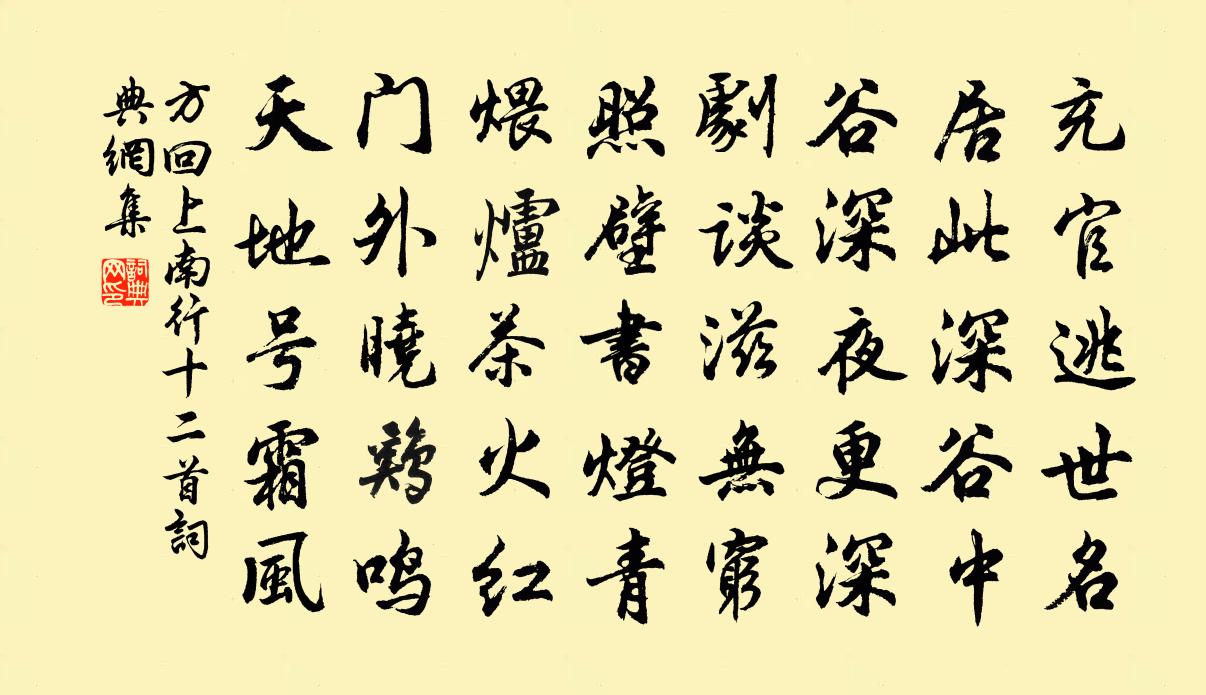 充官逃世名
居此深谷中
谷深夜更深
劇谈滋無窮
照壁書燈青
煨爐茶火红
门外曉鶏鸣
天地号霜風
方回上南行十二首詞
典網集
詞典
网印